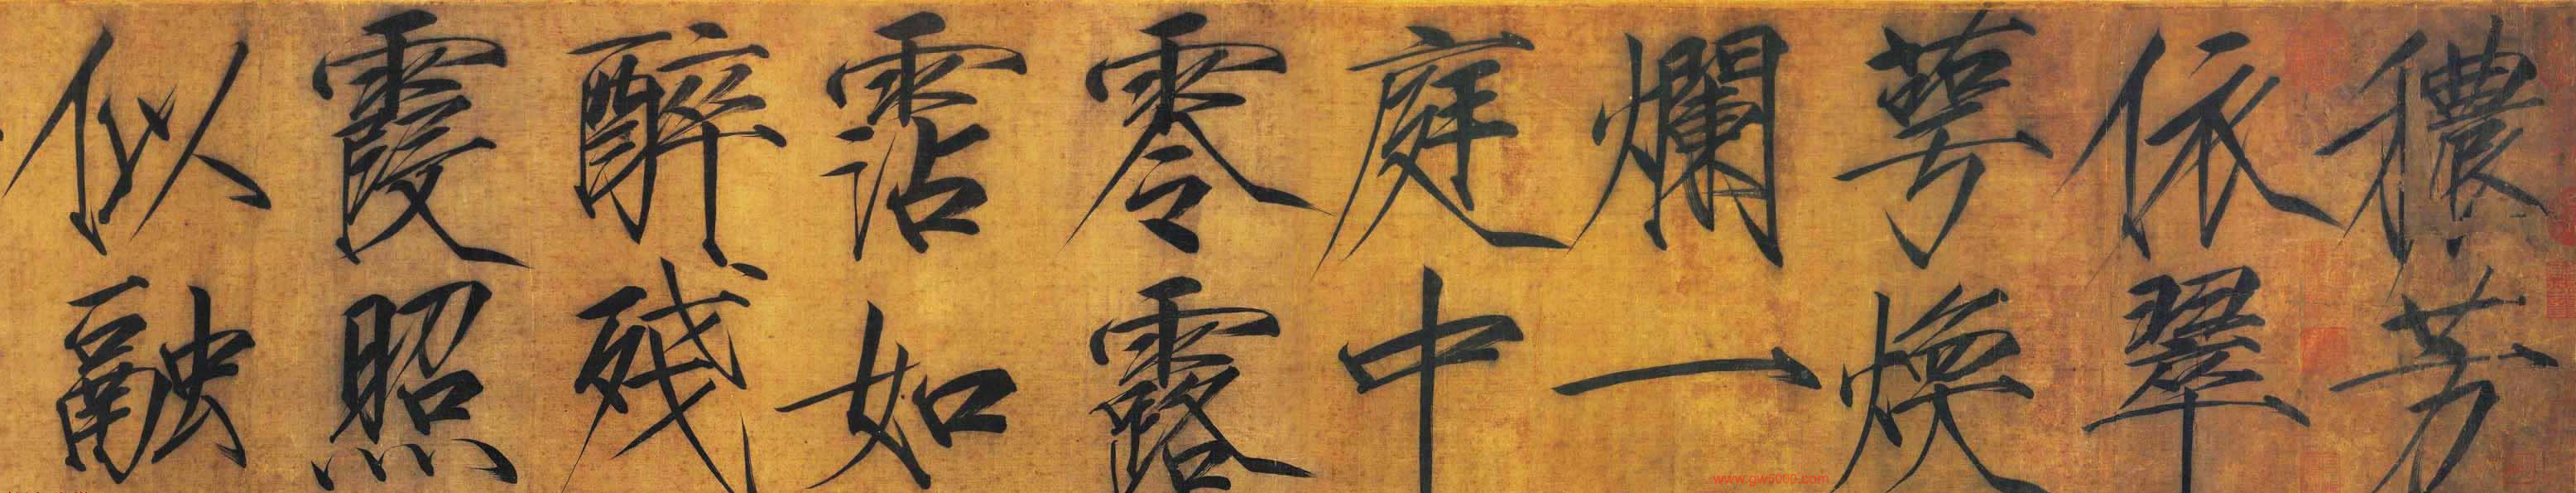 穠芳
依翠
萼煥
爛一
庭中
零露
霑如
醉殘
霞照
似融
www.gw5000.com